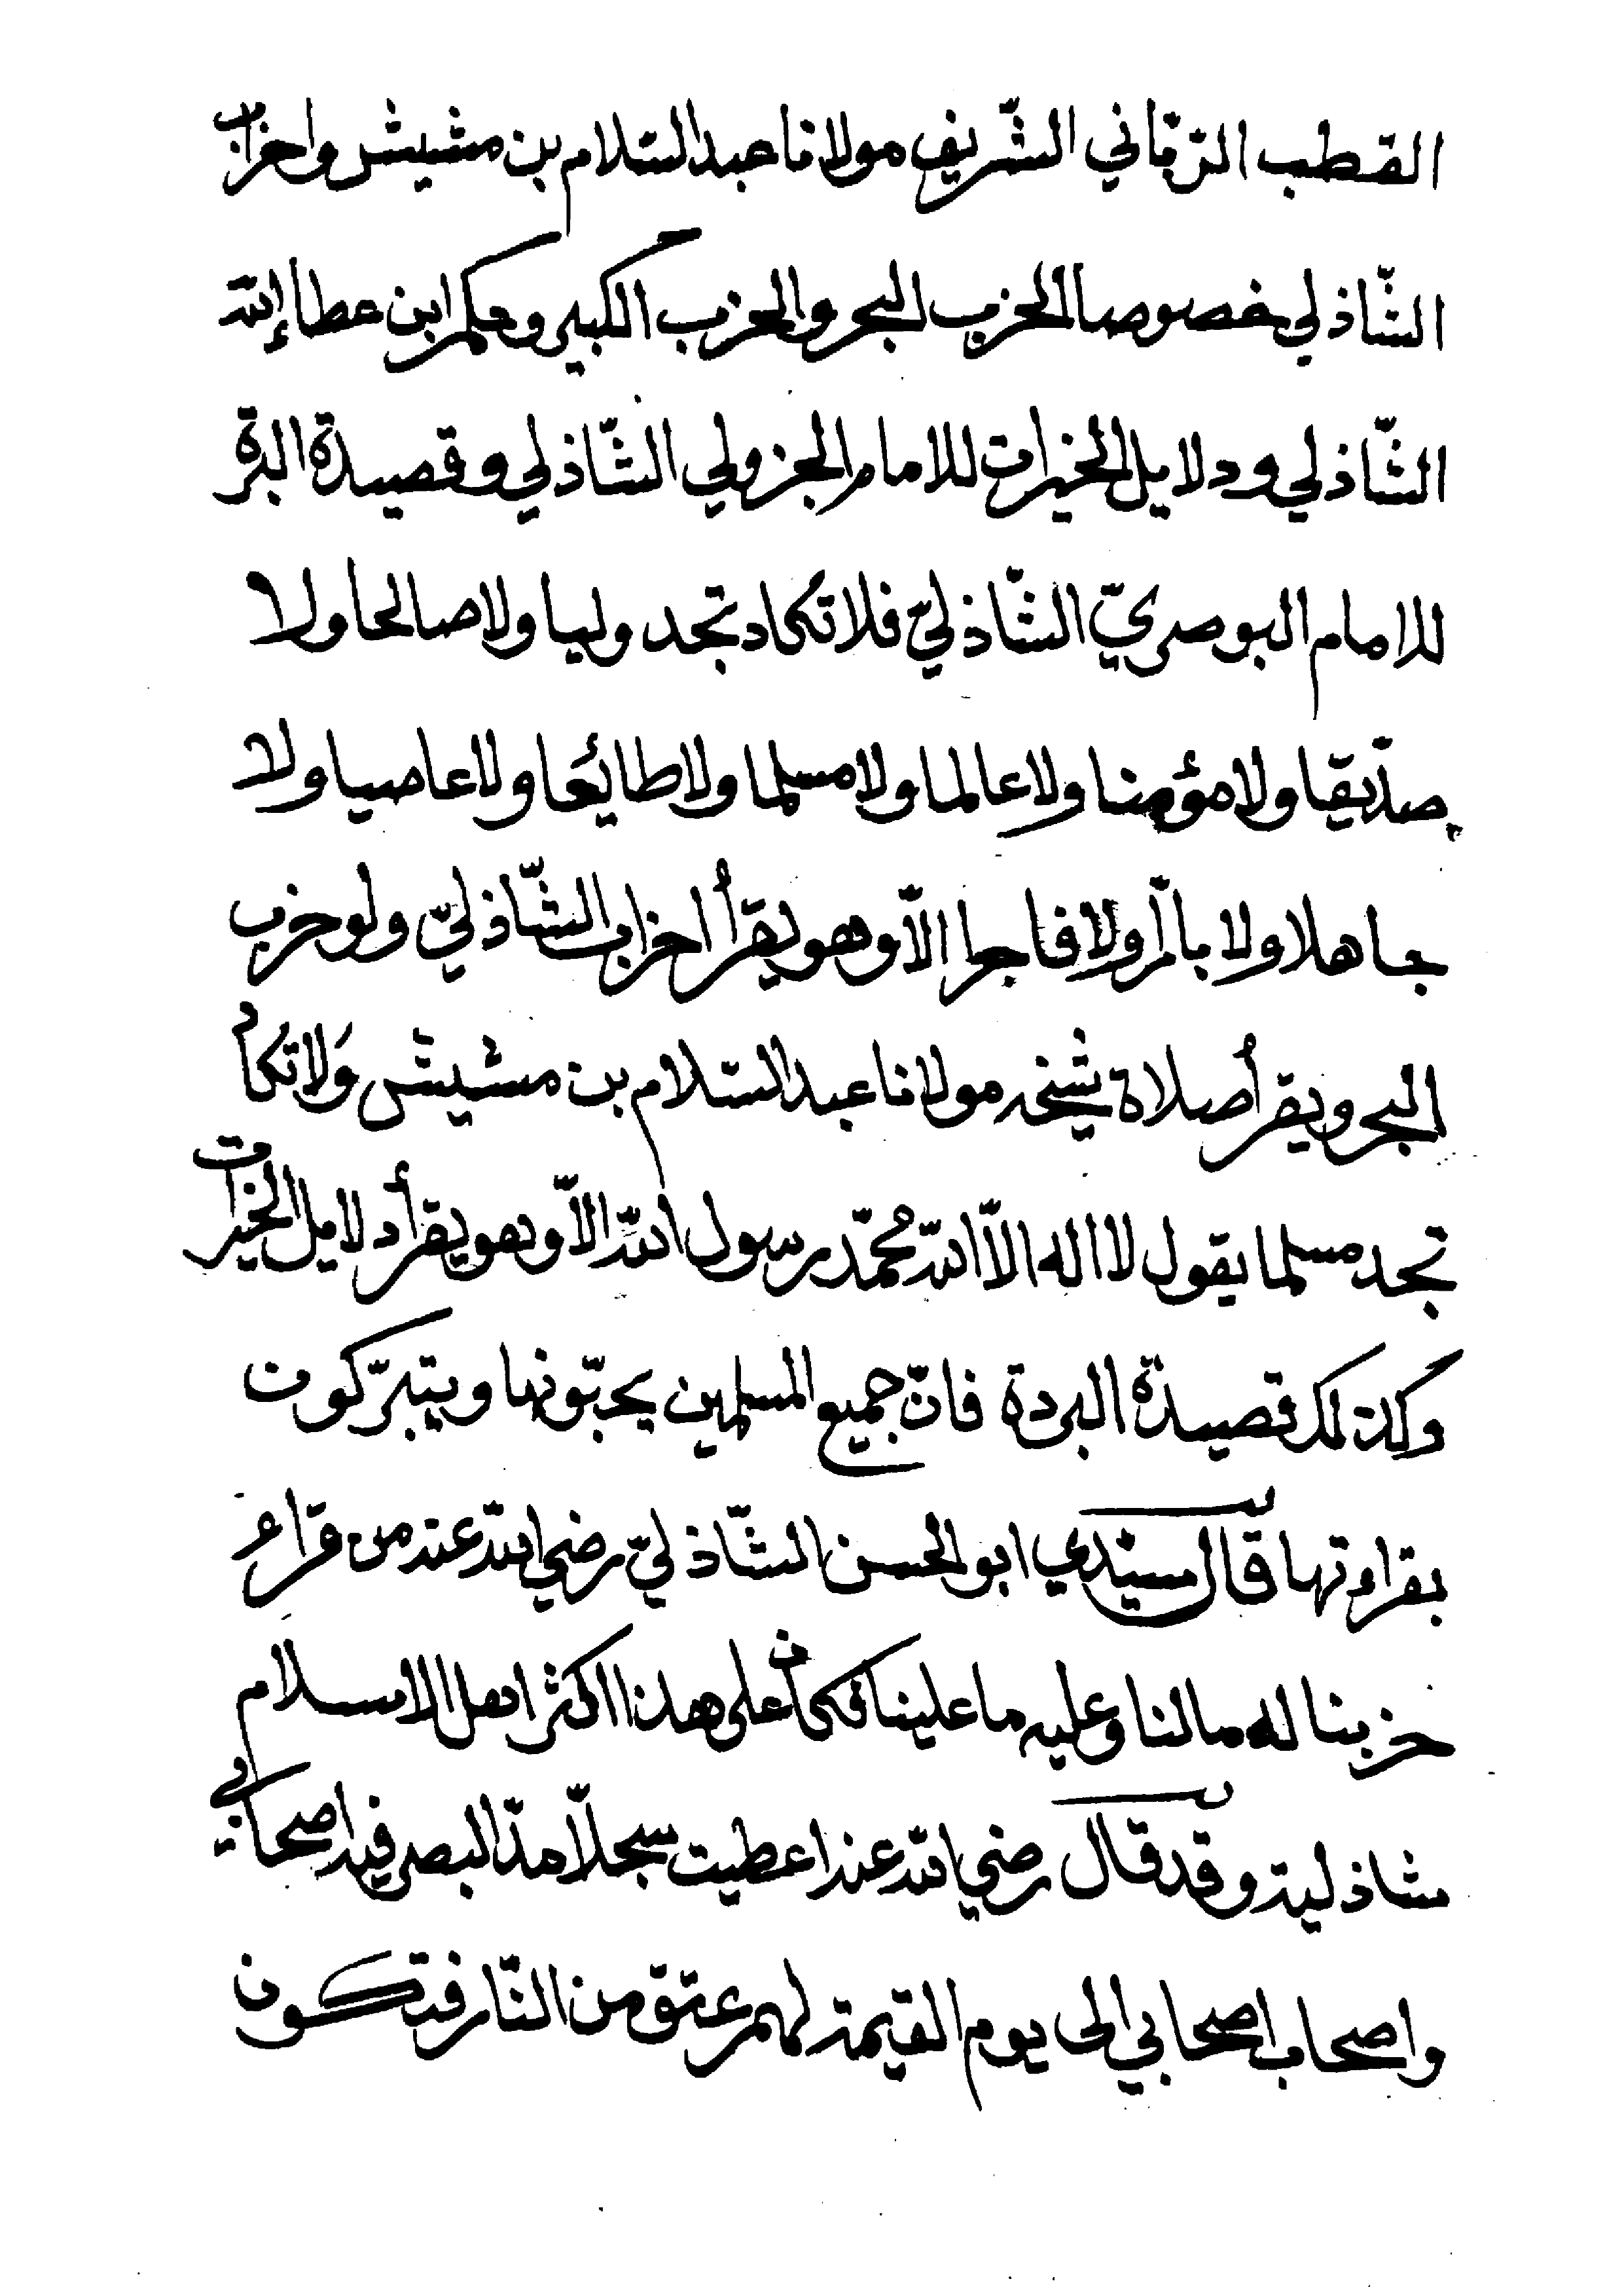 القطب الربّاني الشّريف مولانا عبد السّلام بن مشيش واحزاب
الشّاذلي خصوصا الحزب البحر والحزب الكبير وحكم ابن عطاإ الله
الشّاذلي ودلايل الخيرات للامام الجزولي الشّاذلي وقصيدة البردة
للامام البوصريّ الشّاذليّ فلا تكاد تجد وليا ولا صالحا ولا
صدّيقا ولا مؤمنا ولا عالما ولا مسلما ولا طايعا ولا عاصيا ولا
جاهلا ولا بارّا ولا فاجرا الّا وهو يقرأ احزاب الشّاذليّ ولو حزب
البحر ويقرأ صلاة شيخه مولانا عبد السّلام بن مشيش وَلا تكاد
تجد مسلما يقول لا اله الّا الله محُمّد رسول الله الّا وهو يقرأ دلايل الخيرات
وكذلك قصيدة البردة فانّ جميع المسلمين يحبّونها ويتبرّكون
بقراءتها قال سيّدي ابو الحسن الشّاذليّ رضي الله عنه من قراء
حزبنا له ما لنا وعليه ما علينا فكان على هذا اكثر اهل الاسلام
شاذلية وقد قال رضي الله عنه اعطيت سجلّا مدّ البصر فيه اصحابي
واصحاب اصحابي الى يوم القيمة لهم عتق من النّار فتكون